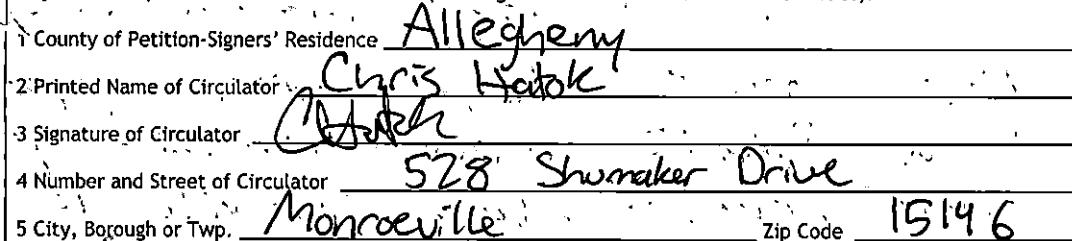 1 County of Petition-Signers' Residence Allegheny
2 Printed Name of Circulator Chris Hatok
3 Signature of Circulator
4 Number and Street of Circulator 528 Shumaker Drive
5 City, Borough or Twp. Monroeville Zip Code 15146